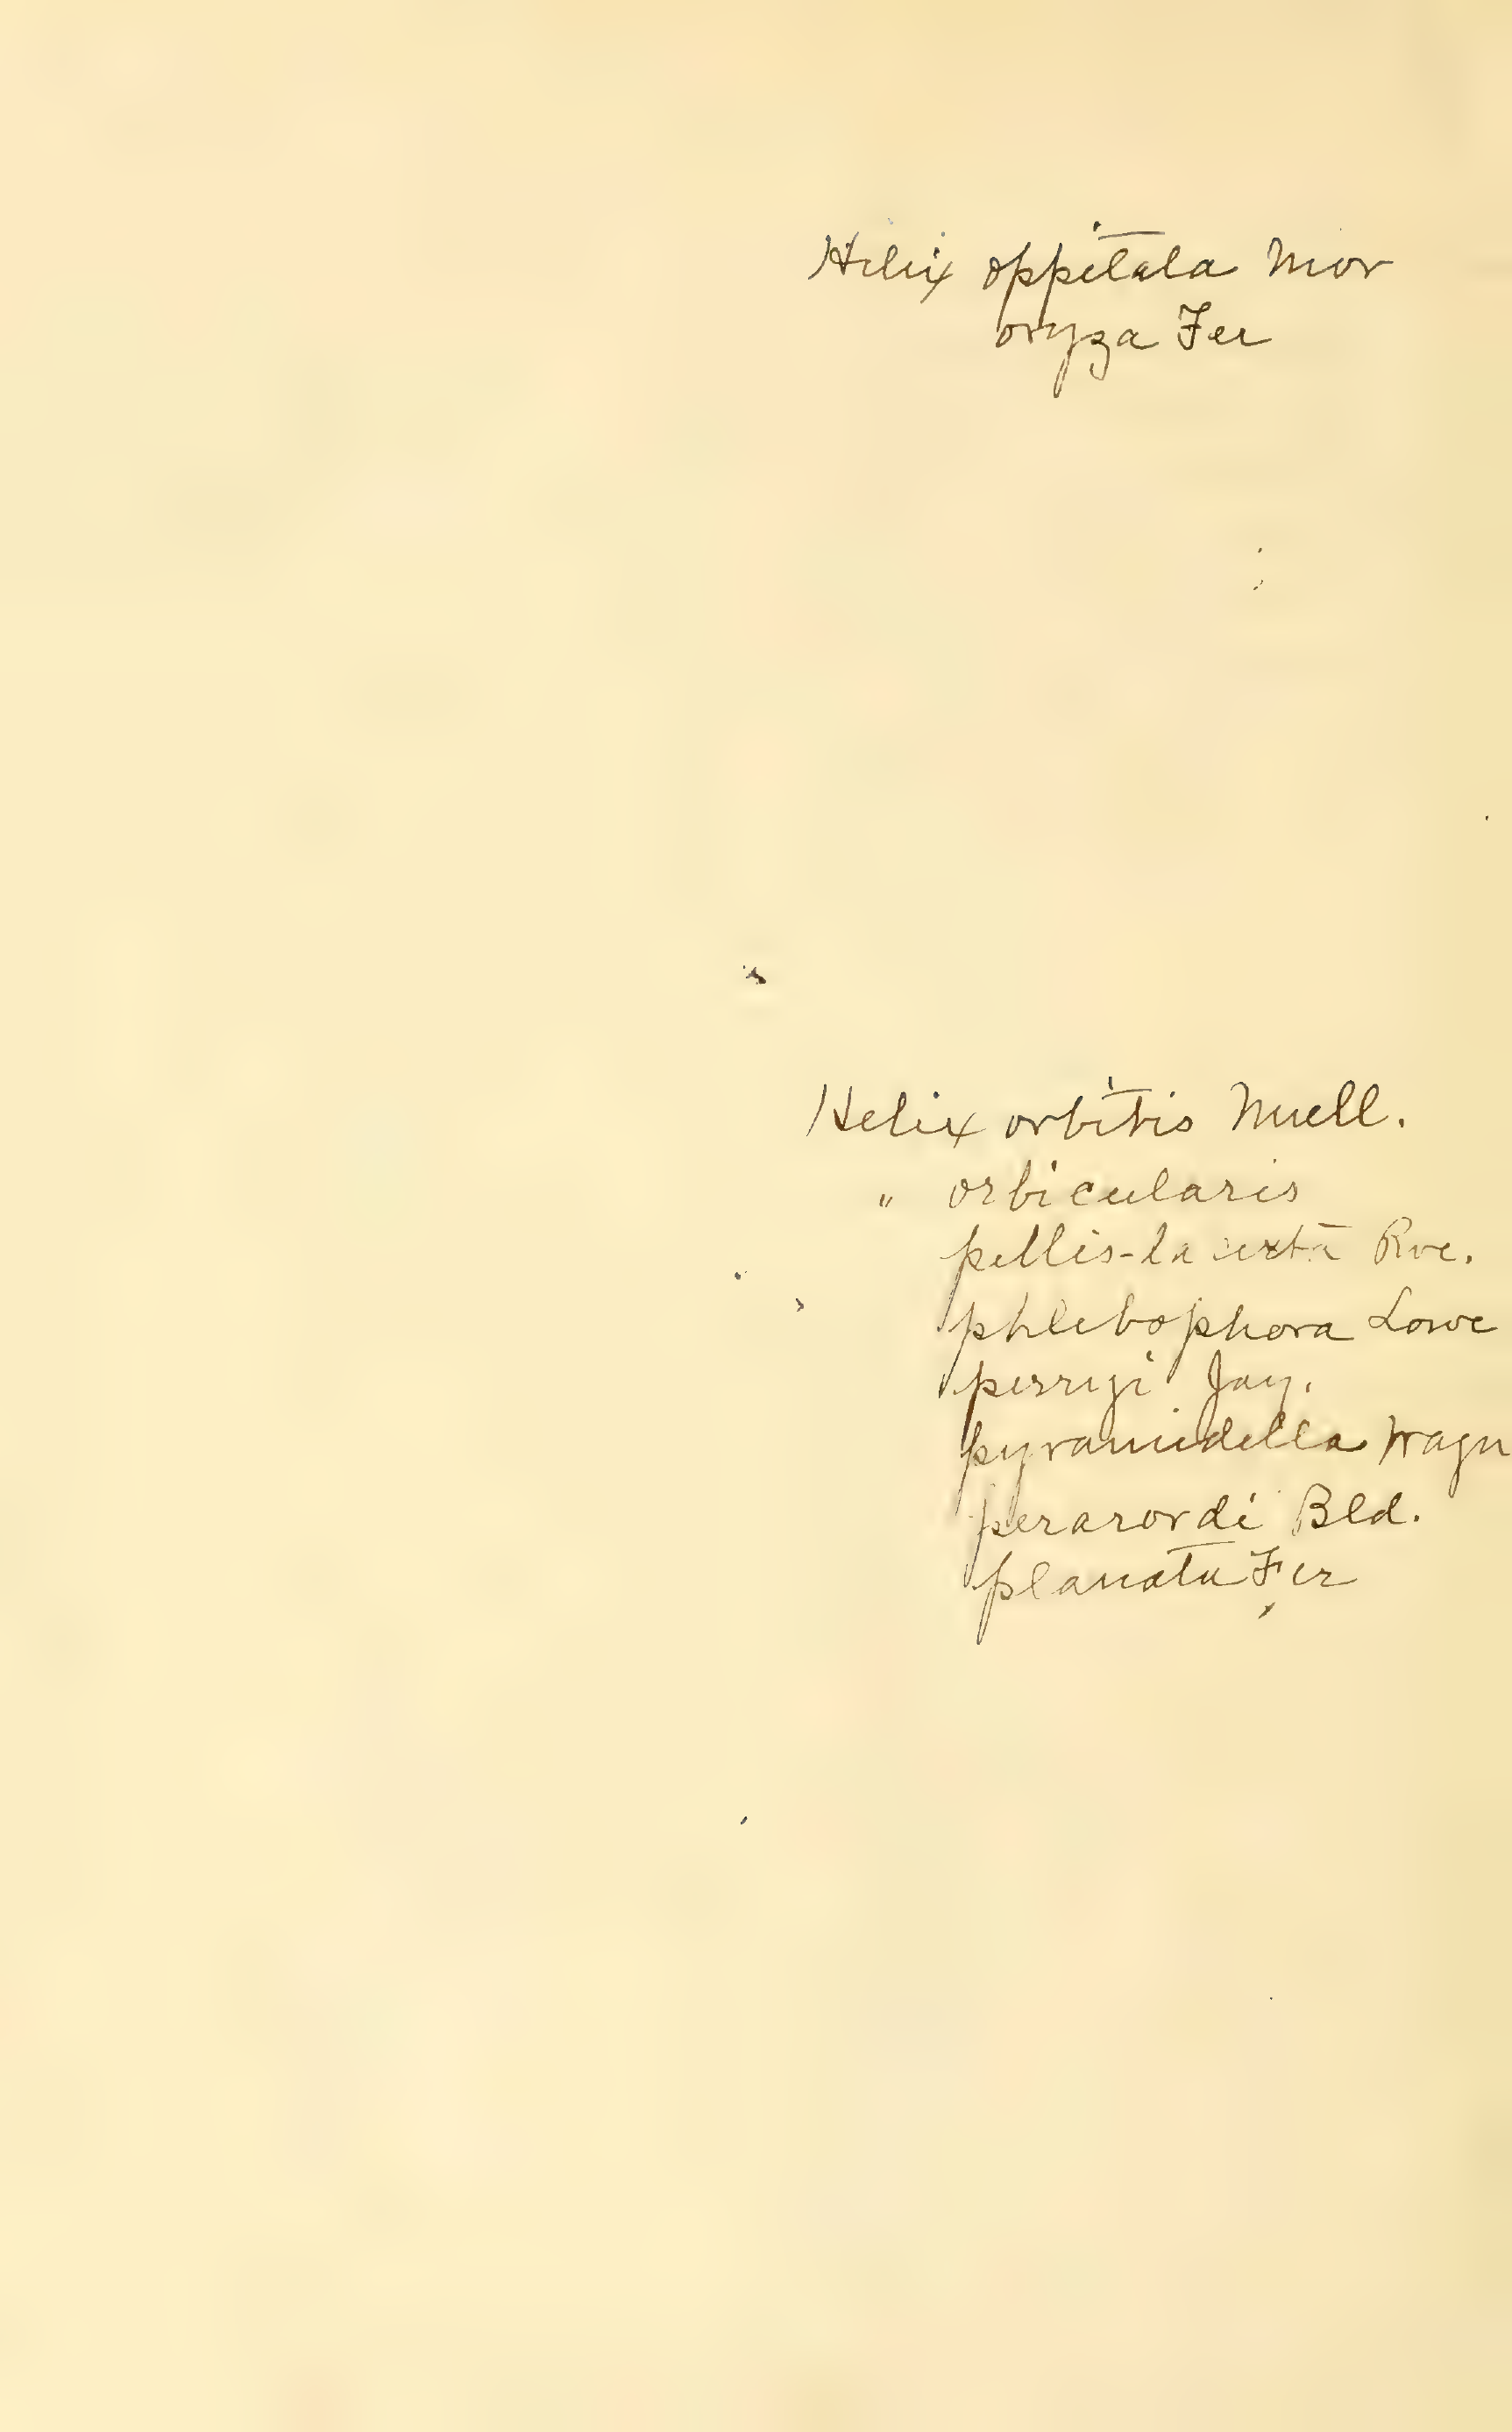 Helix oppitala Mor
oryza Fer
Helix orbitis Muell.
" orbicularis
pellis-lacerta Rve.
phlebophora Lowe
perryi Jay.
pyramidella Wagn
Bld.
planata Fer